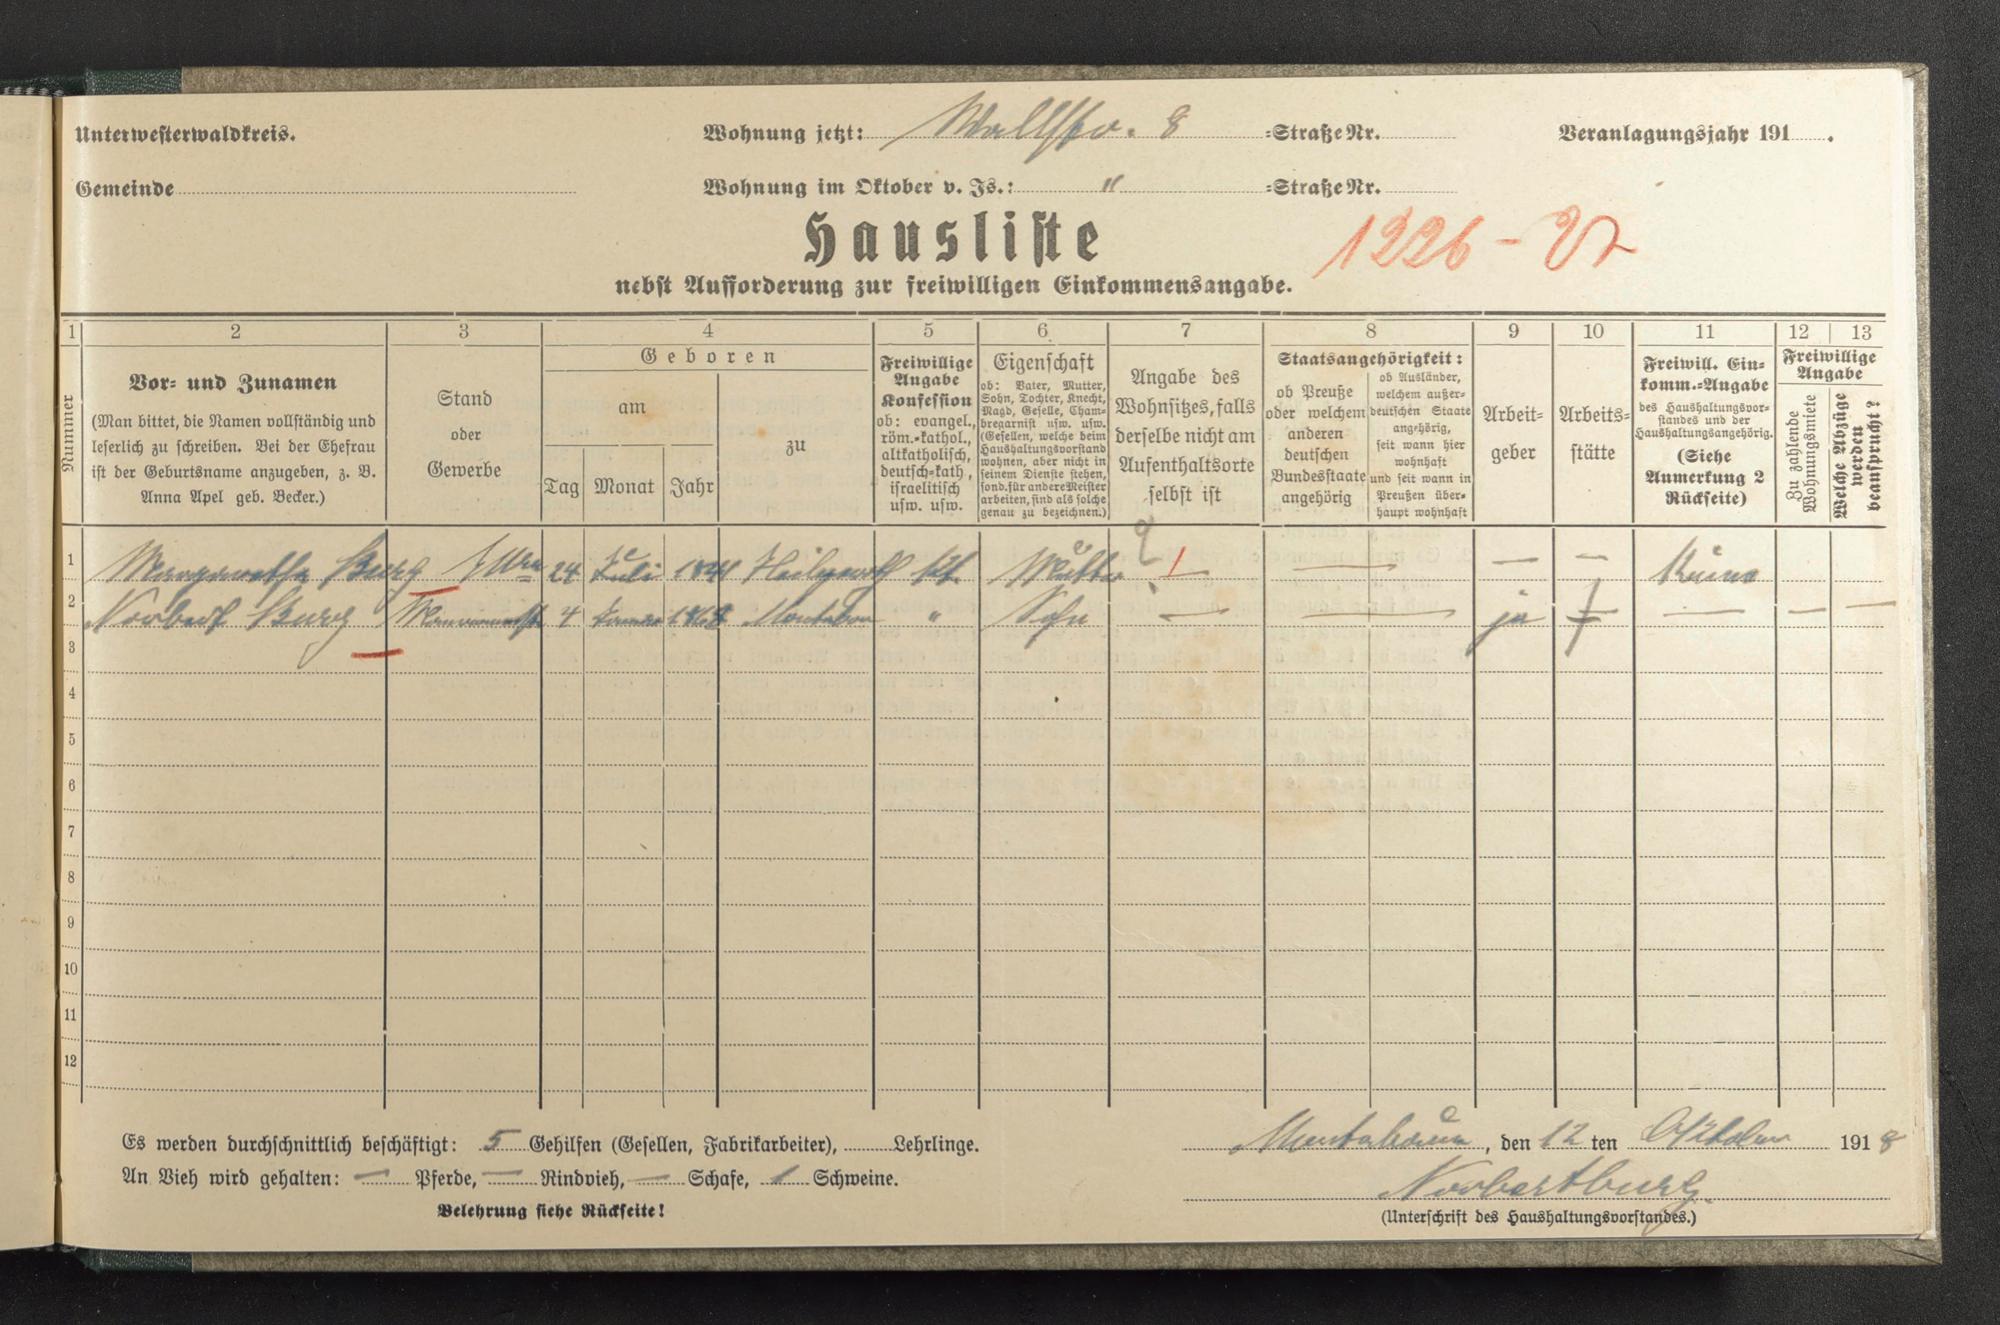 Unterwesterwaldkreis.
Wohnung jetzt: Wallstr. 8 =Straße Nr.
Veranlagungsjahr 191 .
Gemeinde
Wohnung im Oktober v. Js.: " =Straße Nr.
Hausliste
1226-27
nebst Aufforderung zur freiwilligen Einkommensangabe.
1 2 3 4 5 6 7 8 9 10 11 12 13
Nummer
Vor- und Zunamen
(Man bittet, die Namen vollständig und
leserlich zu schreiben. Bei der Ehefrau
ist der Geburtsname anzugeben, z. B.
Anna Apel geb. Becker.)
Stand
oder
Gewerbe
Geboren
am
Tag Monat Jahr
zu
Freiwillige
Angabe
Konfession
ob: evangel.,
röm.-kathol.,
altkatholisch,
deutsch-kath.,
israelitisch
usw. usw.
Eigenschaft
ob: Vater, Mutter,
Sohn, Tochter, Knecht,
Magd, Geselle, Cham-
bregarnist usw. usw.
(Gesellen, welche beim
Haushaltungsvorstand
wohnen, aber nicht in
seinem Dienste stehen,
sond. für andere Meister
arbeiten, sind als solche
genau zu bezeichnen.)
Angabe des
Wohnsitzes, falls
derselbe nicht am
Aufenthaltsorte
selbst ist
Staatsangehörigkeit:
ob Preuße
oder welchem
anderen
deutschen
Bundesstaate
angehörig
ob Ausländer,
welchem außer-
deutschen Staate
angehörig,
seit wann hier
wohnhaft
und seit wann in
Preußen über-
haupt wohnhaft
Arbeit-
geber
Arbeits-
stätte
Freiwill. Ein-
komm.-Angabe
des Haushaltungsvor-
standes und der
Haushaltungsangehörig.
(Siehe
Anmerkung 2
Rückseite)
Freiwillige
Angabe
Zu zahlende
Wohnungsmiete
Welche Abzüge
werden
beansprucht?
1 Margaretha Burg 24 Juli 1841 kth. Mutter — — — Keine
2 Norbert Burg 4 Januar 1868 Montabaur " Sohn — — — ja — — —
3
4
5
6
7
8
9
10
11
12
Es werden durchschnittlich beschäftigt: 5 Gehilfen (Gesellen, Fabrikarbeiter), Lehrlinge.
Montabaur, den 12 ten Oktober 1918
An Vieh wird gehalten: — Pferde, — Rindvieh, — Schafe, 1 Schweine.
Norbert Burg.
Belehrung siehe Rückseite!
(Unterschrift des Haushaltungsvorstandes.)